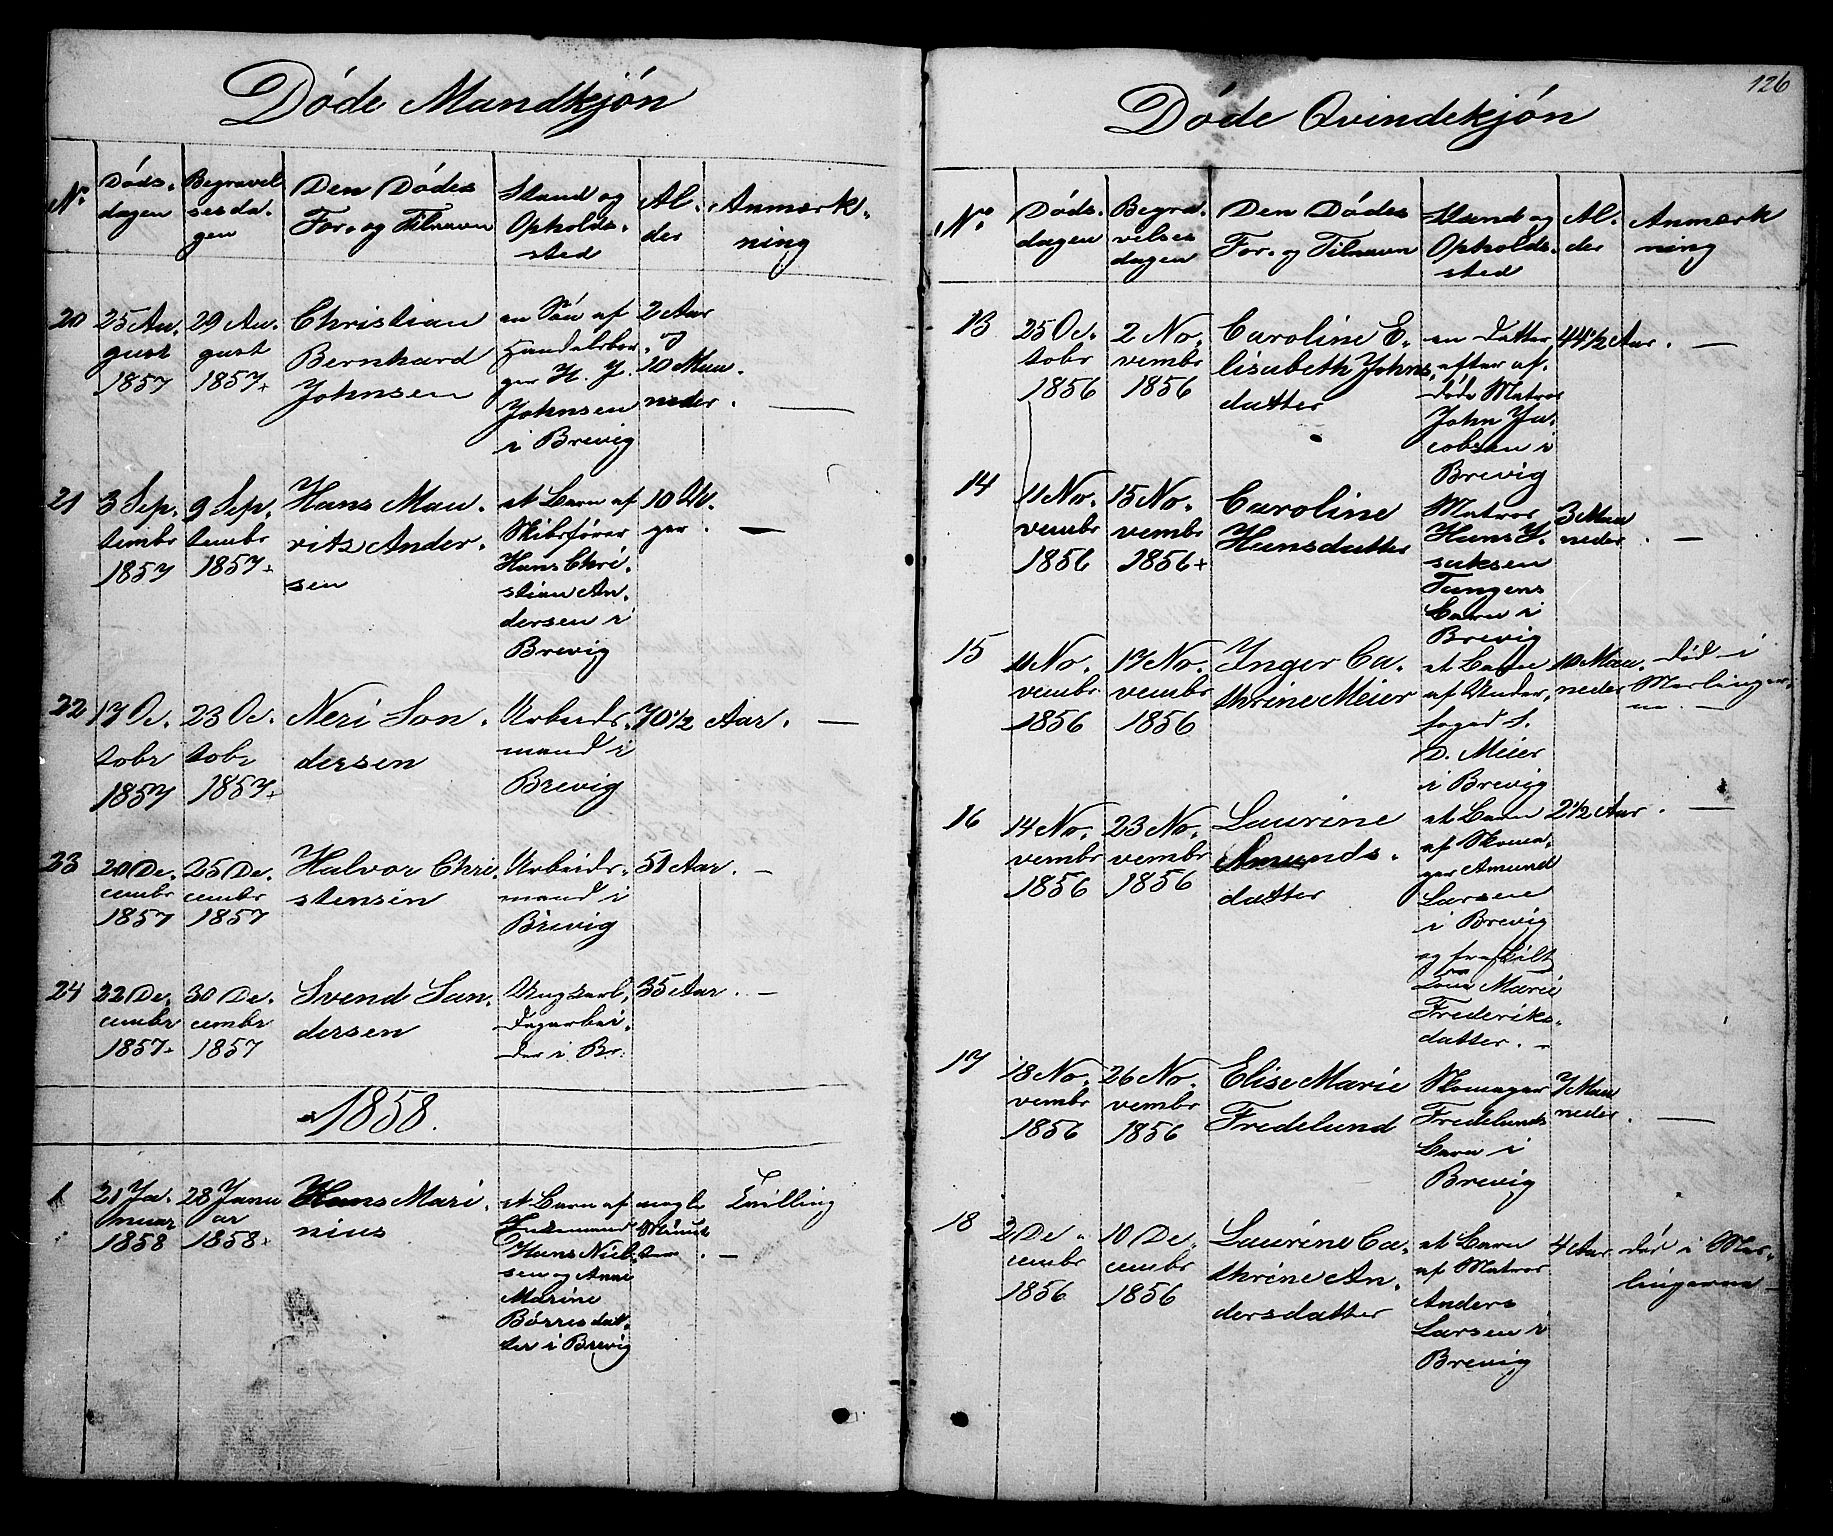 Døde Mandkjøn
No
Døds-
dagen
Begravel
sesda-
gen
Den Dødes
For- og Tilnavn
Stand og
Opholds-
sted
Al-
der
Anmærk-
ning
20
25 Au-
gust
1857
29 Au-
gust
1857+
Christian
Bernhard
Johnsen
en Søn af
Handelsbor-
ger H. J.
Johnsen
i Brevig
2 Aar
og
10 Maa-
neder. —
21
3 Sep-
tembr
1857
9 Sep-
tembr
1857+
Hans Mau-
ritz Ander-
sen
et Barn af
Skibsfører
Hans Chri-
stian An-
dersen i
Brevig
10 Uu-
ger. —
22
17 Oc-
tobr
1857
23 Oc-
tobr
1857+
Neri Son-
dersen
Arbeids-
mand i
Brevig
70 1/2 Aar. —
23
20 De-
cembr
1857
25 De-
cembr
1857
Halvor Chri-
stensen
Arbeids-
mand i
Brevig
51 Aar. —
24
22 De-
cembr
1857+
30 De-
cembr
1857
Svend San-
dersen
Ungkarl,
Dagarbei-
der i Br:
35 Aar. —
1858.
1
21 Ja-
nuar
1858
28 Janu
ar
1858+
Hans Mari-
nius
et Barn af
Hans Niel-
sen og Anne
Marine
Børresdat-
ter i Brevig
nogle
Minut-
ter. —
Tvilling
126
Døde Qvindekjøn
No
Døds-
dagen
Begra-
velses
dagen
Den Dødes
For- og Tilnavn
Stand og
Opholds-
sted
Al-
der
Anmærk
ning
13
25 Oc-
tobr
1856
2 No-
vembr
1856
Caroline E-
lisabeth Johns-
datter
en Datter
efter af-
døde Matros
John Ja-
cobsen i
Brevig
44 1/2 Aar. —
14
11 No-
vembr
1856
15 No-
vembr
1856+
Caroline
Hansdatter
Matros
Hans I-
saksen
Tangens
Barn i
Brevig
3 Maa
neder. —
15
11 No-
vembr
1856
17 No-
vembr
1856
Inger Ca-
thrine Meier
et Barn
af Under-
foged S.
D. Meier
i Brevig
10 Maa-
neder
død i
Meslinger-
ne. —
16
14 No-
vembr
1856
23 No-
vembr
1856
Laurine
Amunds-
datter
et Barn
af Skoma-
ger Amund
Larsen
i Brevig
og fraskilt
Kone Marie
Frederiks-
datter. —
2 1/2 Aar. —
17
18 No-
vembr
1856
26 No-
vembr
1856
Elise Marie
Fredelund
Skomager
Fredelunds
Barn i
Brevig
7 Maa
neder. —
18
2 De-
cembr
1856
10 De-
cembr
1856
Laurine Ca-
thrine An-
dersdatter
et Barn
af Matros
Anders
Larsen i
Brevig
4 Aar
død i Mes-
lingerne —